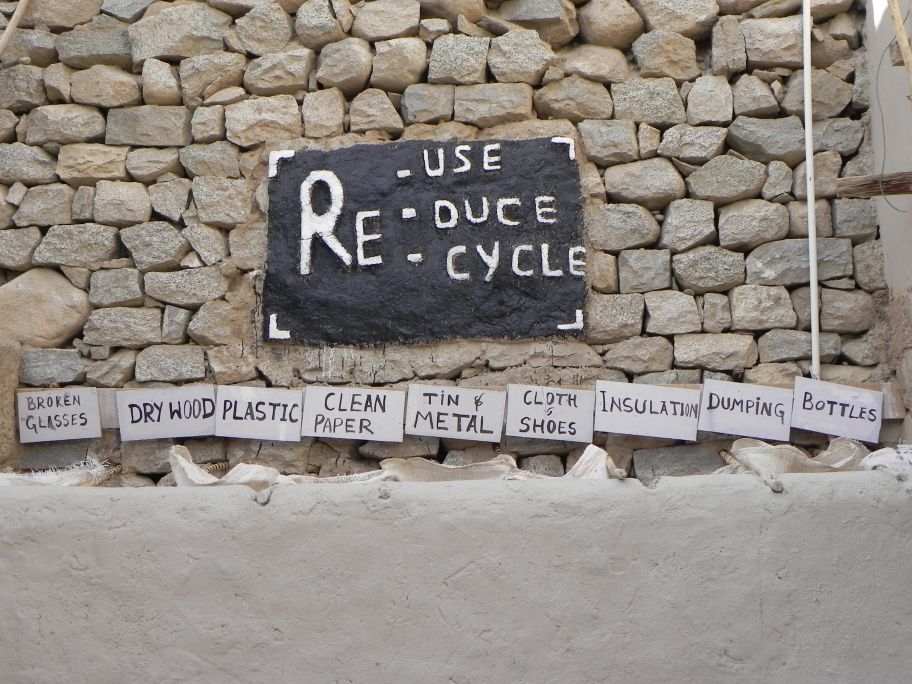 -USE
RE-DUCE
-CYCLE
BROKEN
GLASSES
DRY WOOD
PLASTIC
CLEAN
PAPER
TIN &
METAL
CLOTH
&
SHOES
INSULATION
DUMPING
BOTTLES